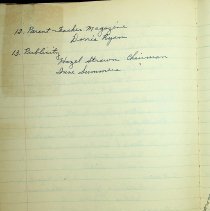 12. Parent-Teacher Magazine
Doris Ryan
13. Publicity
Hazel Strawn Chairman
Irene Summers